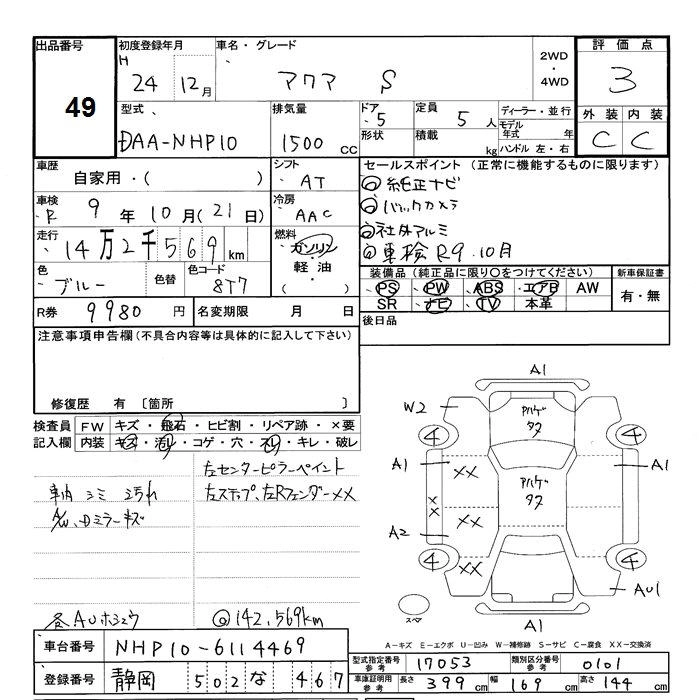 出品番号
49
初度登録年月
H 24 12月
車名・グレード
アクア S
2WD
・
4WD
評価点
3
外装 内装
C C
型式
DAA-NHP10
排気量
1500 CC
ドア
5
定員
5 人
形状
積載
kg
ディーラー・並行
モデル年式 年
ハンドル 左・右
車歴
自家用・( )
シフト
AT
車検
R 9 年 10 月(21日)
冷房
AAC
走行
14万2千569 km
燃料
ガソリン
・
軽油
・
( )
色
ブルー
色替
色コード
8T7
R券 9980 円
名変期限 月 日
セールスポイント (正常に機能するものに限ります)
◎純正ナビ
◎バックカメラ
◎社外アルミ
◎車検R9.10月
装備品(純正品に限り○をつけてください)
・PS ・PW ・ABS ・エアB AW
SR ナビ TV 本革
新車保証書
有・無
後日品
注意事項申告欄(不具合内容等は具体的に記入して下さい)
修復歴 有 〔箇所 〕
検査員記入欄
FW キズ・飛石・ヒビ割・リペア跡・×要
内装 キズ・汚れ・コゲ・穴・スレ・キレ・破レ
左センターピラーペイント
車内 シミ 汚れ
左ステップ、左Rフェンダー××
A/W、Dミラーキズ
各AUホシュウ
◎142,569km
A1
W2
Aハゲ
タス
4
4
A1
XX
A1
XX
Aハゲ
タス
A2
XX
4
4
XX
AU1
A1
スペア
A−キズ E−エクボ U−凹み W−補修跡 S−サビ C−腐食 XX−交換済
車台番号 NHP10-6114469
登録番号 静岡 502 な 467
型式指定番号 参考 17053
類別区分番号 参考 0101
車庫証明用 参考 長さ 399 cm 幅 169 cm 高さ 144 cm